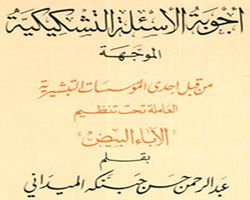 أجوبة الأسئلة التشكيكية
الموجهة
من قبل إحدى المؤسسات التبشيرية
العاملة تحت تنظيم
"الآباء البيض"
بقلم
عبدالرحمن حسن حبنكه الميداني